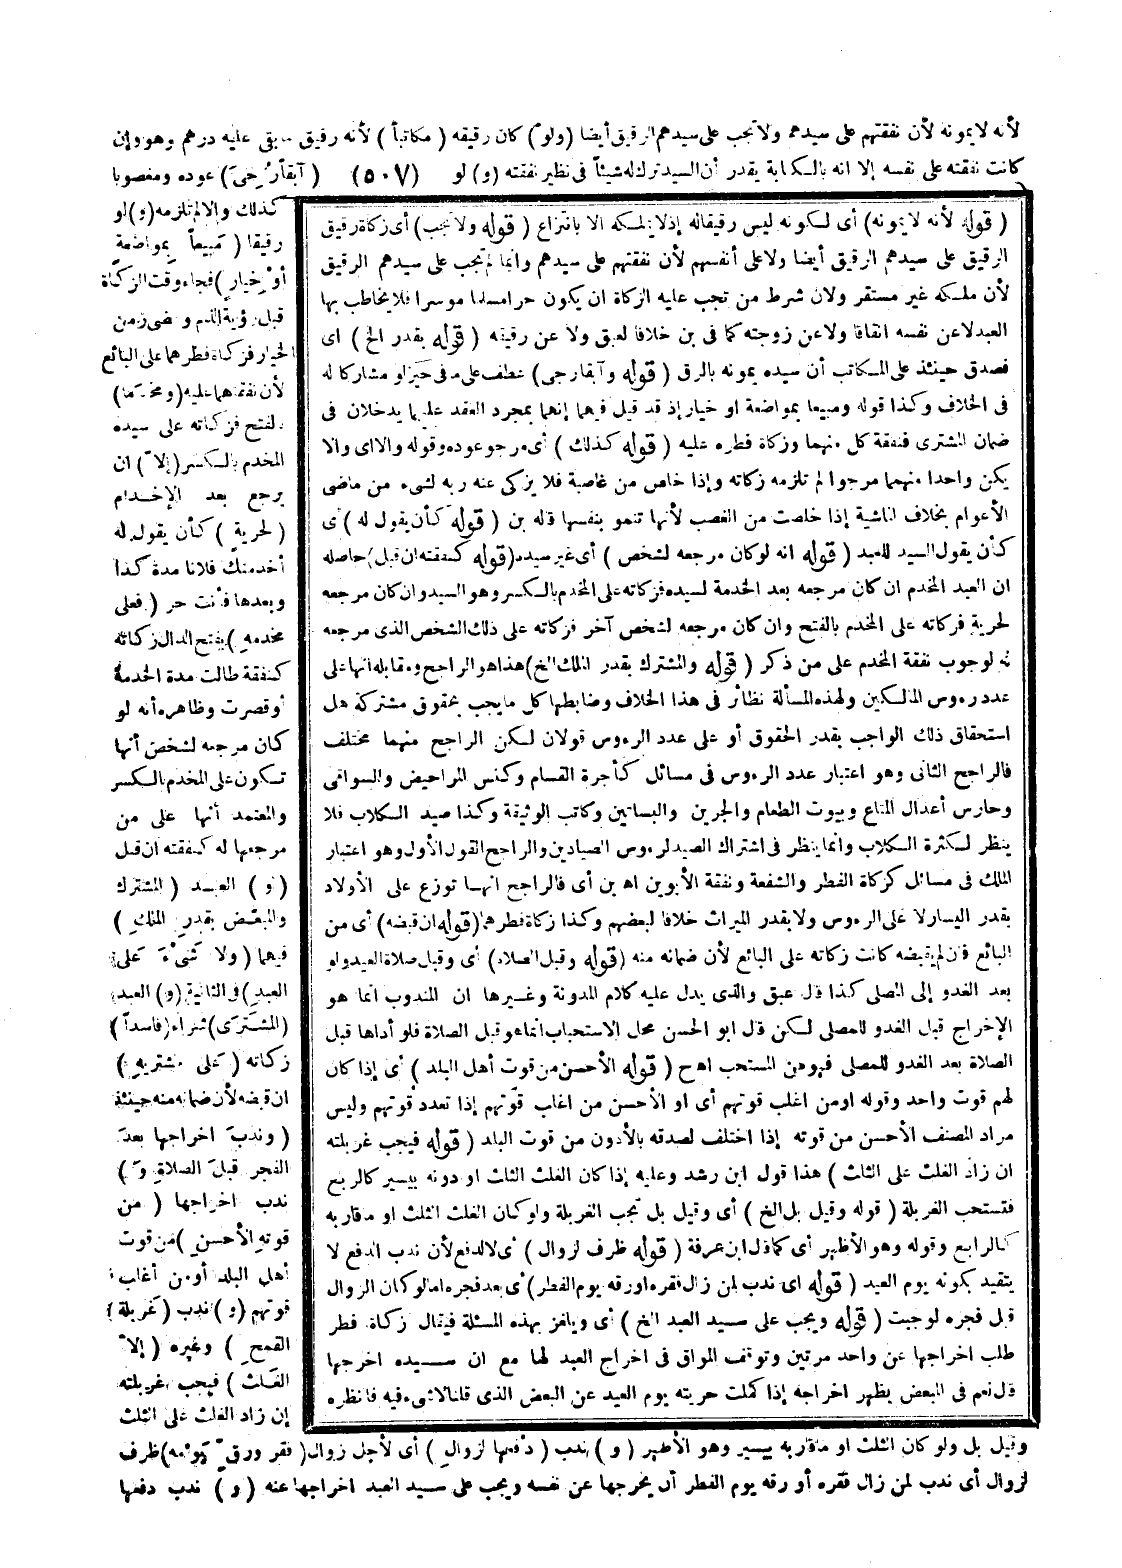 لأنه لا يمونه لأن نفقتهم على سيدهم ولا تجب على سيدهم الرقيق أيضا (ولو) كان رقيقه (مكاتباً) لأنه رقيق ما بقى عليه درهم وهو وإن
كانت نفقته على نفسه إلا انه بالكتابة يقدر أن السيد ترك له شيئاً فى نظير نفقته (و) لو (٥٠٧) (آبقاً رُجِىَ) عوده ومغصوبا
كذلك وإلا لم تلزمه (و) لو
رقيقا (مَبيعاً بِمواضعةٍ
أوْ خيارٍ) فجاء وقت الزكاة
قبل رؤية الدم ومضى زمن
الخيار فزكاة فطرهما على البائع
لأن نفقتهما عليه (و مخدَما)
بالفتح فزكاته على سيده
المخدم بالكسر (إلا) ان
يرجع بعد الإخدام
(لحريةٍ) كأن يقول له
أخدمتك فلانا مدة كذا
وبعدها فأنت حر (فعلى
مخدمهِ) بفتح الدال زكاته
كنفقة طالت مدة الخدمة
أو قصرت وظاهره أنه لو
كان مرجعه لشخص أنها
تكون على المخدم بالكسر
والمعتمد أنها على من
مرجعها له كنفقته ان قبل
(و) العبد (المشترك
والمبعّض بقدرِ الملكِ)
فيهما (ولا شَىْءَ عَلى
العبدِ) فى الثانية (و) العبد
(المشترَى) شراء (فاسداً)
زكاته (عَلى مشتريهِ)
ان قبضه لأن ضمانه منه حينئذ
(وندبَ اخراجها بعدَ
الفجر قبلَ الصلاةِ وَ)
ندب اخراجها (من
قوتهِ الأحسنِ) من قوت
أهل البلد أو من أغلب
قوتهم (و) ندب (غَربلة
القمحِ) وغيره (إلا
الغَلث) فيجب غربلته
إن زاد الغلث على الثلث
(قوله لأنه لا يمونه) أى لكونه ليس رقيقا له إذ لا يملكه الا بانتزاع (قوله ولا تجب) أى زكاة رقيق
الرقيق على سيدهم الرقيق أيضا ولا على أنفسهم لأن نفقتهم على سيدهم وانما لم تجب على سيدهم الرقيق
لأن ملكه غير مستقر ولان شرط من تجب عليه الزكاة ان يكون حرا مسلما موسرا فلا يخاطب بها
العبد لا عن نفسه اتفاقا ولا عن زوجته كما فى بن خلافا لعبق ولا عن رقيقه (قوله يقدر الخ) اى
فصدق حينئذ على المكاتب أن سيده يمونه بالرق (قوله وآبقا رجى) عطف على ما فى حيز لو مشاركا له
فى الخلاف وكذا قوله ومبيعا بمواضعة او خيار إذ قد قيل فيهما إنهما بمجرد العقد عليهما يدخلان فى
ضمان المشترى فنفقة كل منهما وزكاة فطره عليه (قوله كذلك) أى مرجو عوده وقوله والا اى والا
يكن واحدا منهما مرجوا لم تلزمه زكاته وإذا خلص من غاصبه فلا يزكى عنه ربه لشىء من ماضى
الأعوام بخلاف الماشية إذا خلصت من الغصب لأنها تنمو بنفسها قاله بن (قوله كأن يقول له) أى
كأن يقول السيد للعبد (قوله انه لو كان مرجعه لشخص) أى غير سيده (قوله كنفقته ان قبل) حاصله
ان العبد المخدم ان كان مرجعه بعد الخدمة لسيده فزكاته على المخدم بالكسر وهو السيد وان كان مرجعه
لحرية فزكاته على المخدم بالفتح وان كان مرجعه لشخص آخر فزكاته على ذلك الشخص الذى مرجعه
له لوجوب نفقة المخدم على من ذكر (قوله والمشترك بقدر الملك الخ) هذا هو الراجح ومقابله انها على
عدد رءوس المالكين ولهذه المسألة نظائر فى هذا الخلاف وضابطها كل ما يجب بحقوق مشتركة هل
استحقاق ذلك الواجب بقدر الحقوق أو على عدد الرءوس قولان لكن الراجح منهما مختلف
فالراجح الثانى وهو اعتبار عدد الرءوس فى مسائل كأجرة القسام وكنس المراحيض والسواقى
وحارس أعدال المتاع وبيوت الطعام والجرين والبساتين وكاتب الوثيقة وكذا صيد الكلاب فلا
ينظر لكثرة الكلاب وانما ينظر فى اشتراك الصيد لرءوس الصيادين والراجح القول الأول وهو اعتبار
الملك فى مسائل كزكاة الفطر والشفعة ونفقة الأبوين اه بن أى فالراجح انها توزع على الأولاد
بقدر اليسار لا على الرءوس ولا بقدر الميراث خلافا لبعضهم وكذا زكاة فطرهما (قوله ان قبضه) أى من
البائع فان لم يقبضه كانت زكاته على البائع لأن ضمانه منه (قوله وقبل الصلاة) أى وقبل صلاة العيد ولو
بعد الغدو إلى المصلى كذا قال عبق والذى يدل عليه كلام المدونة وغيرها ان المندوب انما هو
الإخراج قبل الغدو للمصلى لكن قال ابو الحسن محل الاستحباب انما هو قبل الصلاة فلو أداها قبل
الصلاة بعد الغدو للمصلى فهو من المستحب اه ح (قوله الأحسن من قوت أهل البلد) أى إذا كان
لهم قوت واحد وقوله او من اغلب قوتهم أى او الأحسن من اغلب قوتهم إذا تعدد قوتهم وليس
مراد المصنف الأحسن من قوته إذا اختلف لصدقه بالأدون من قوت البلد (قوله فيجب غربلته
ان زاد الغلث على الثلث) هذا قول ابن رشد وعليه إذا كان الغلث الثلث او دونه بيسير كالربع
فتستحب الغربلة (قوله وقيل بل الخ) أى وقيل بل تجب الغربلة ولو كان الغلث الثلث او ما قاربه
كالرابع وقوله وهو الأظهر أى كما قال ابن عرفة (قوله ظرف لزوال) أى لا لدفع لأن ندب الدفع لا
يتقيد بكونه يوم العيد (قوله اى ندب لمن زال فقره او رقه يوم الفطر) أى بعد فجره اما لو كان الزوال
قبل فجره لوجبت (قوله ويجب على سيد العبد الخ) أى ويلغز بهذه المسئلة فيقال زكاة فطر
طلب اخراجها عن واحد مرتين وتوقف المواق فى اخراج العبد لها مع ان سيده اخرجها
قال نعم فى المبعض يظهر اخراجه إذا كملت حريته يوم العيد عن البعض الذى قلنا لا شىء فيه فانظره
وقيل بل ولو كان الثلث او ما قاربه بيسير وهو الأظهر (و) ندب (دفعها لزوالِ) أى لأجل زوال (فقر ورقٍّ يَومَه) ظرف
لزوال أى ندب لمن زال فقره أو رقه يوم الفطر أن يخرجها عن نفسه ويجب على سيد العبد اخراجها عنه (و) ندب دفعها